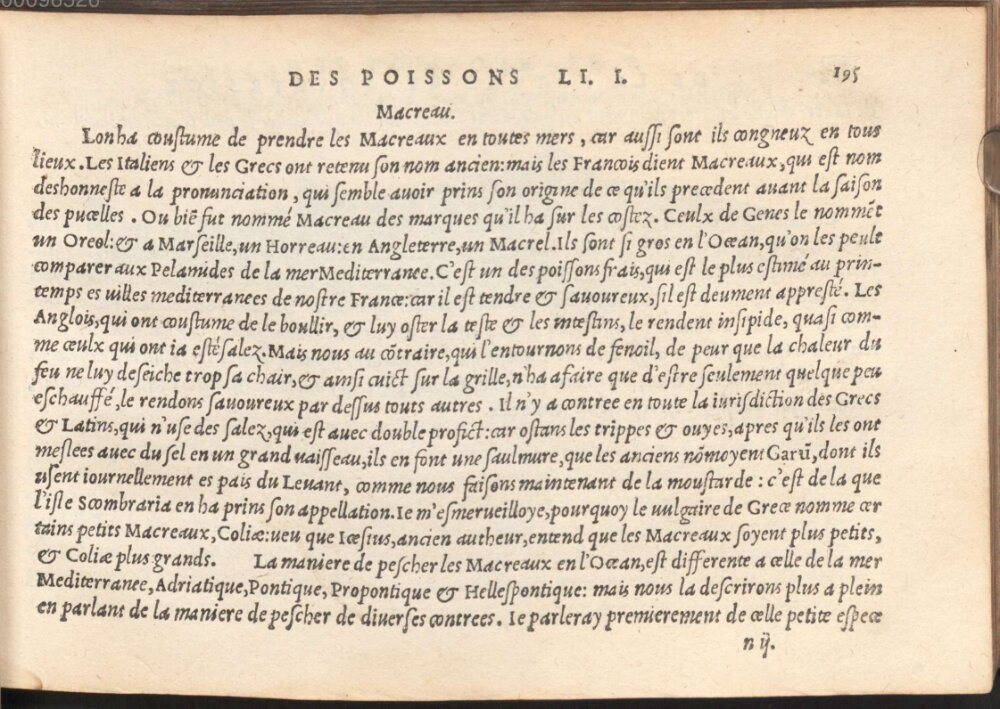 00098526
DES POISSONS LI. I.
195
Macreau.
Lonha coustume de prendre les Macreaux en toutes mers, car aussi sont ils congneuz en tous
lieux. Les Italiens & les Grecs ont retenu son nom ancien: mais les Francois dient Macreaux, qui est nom
deshonneste a la pronunciation, qui semble auoir prins son origine de ce qu'ils precedent auant la saison
des pucelles. Ou biẽ fut nommé Macreau des marques qu'il ha sur les costez. Ceulx de Genes le nommẽt
un Oreol: & a Marseille, un Horreau: en Angleterre, un Macrel. Ils sont si gros en l'Ocean, qu'on les peult
comparer aux Pelamides de la mer Mediterranee. C'est un des poissons frais, qui est le plus estimé au prin-
temps es uilles mediterranees de nostre France: car il est tendre & sauoureux, s'il est deument appresté. Les
Anglois, qui ont coustume de le boullir, & luy oster la teste & les intestins, le rendent insipide, quasi com-
me ceulx qui ont ia esté salez. Mais nous au cõtraire, qui l'entournons de fenoil, de peur que la chaleur du
feu ne luy deseiche trop sa chair, & ainsi cuict sur la grille, n'ha afaire que d'estre seulement quelque peu
eschauffé, le rendons sauoureux par dessus touts autres. Il n'y a contree en toute la iurisdiction des Grecs
& Latins, qui n'use des salez, qui est auec double profict: car ostans les trippes & ouyes, apres qu'ils les ont
meslees auec du sel en un grand uaisseau, ils en font une saulmure, que les anciens nõmoyent Garũ, dont ils
usent iournellement es païs du Leuant, comme nous faisons maintenant de la moustarde: c'est de la que
l'isle Scombraria en ha prins son appellation. Ie m'esmerueilloye, pourquoy le uulgaire de Grece nomme cer
tains petits Macreaux, Coliæ: ueu que Icesius, ancien autheur, entend que les Macreaux soyent plus petits,
& Coliæ plus grands. La maniere de pescher les Macreaux en l'Ocean, est differente a celle de la mer
Mediterranee, Adriatique, Pontique, Propontique & Hellespontique: mais nous la descrirons plus a plein
en parlant de la maniere de pescher de diuerses contrees. Ie parleray premierement de celle petite espece
n ij.